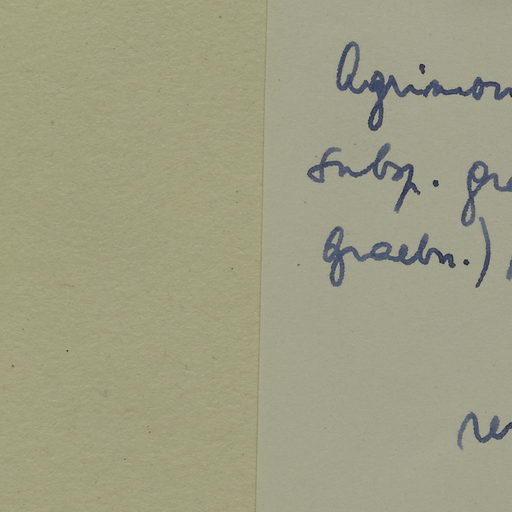 Agrimon
subsp. gra
Graebn.)
re